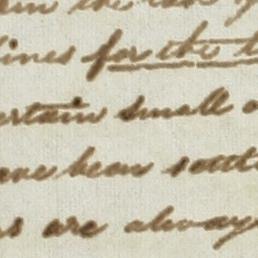 the case
lines for the t
ertain small
ave been settl
s are always